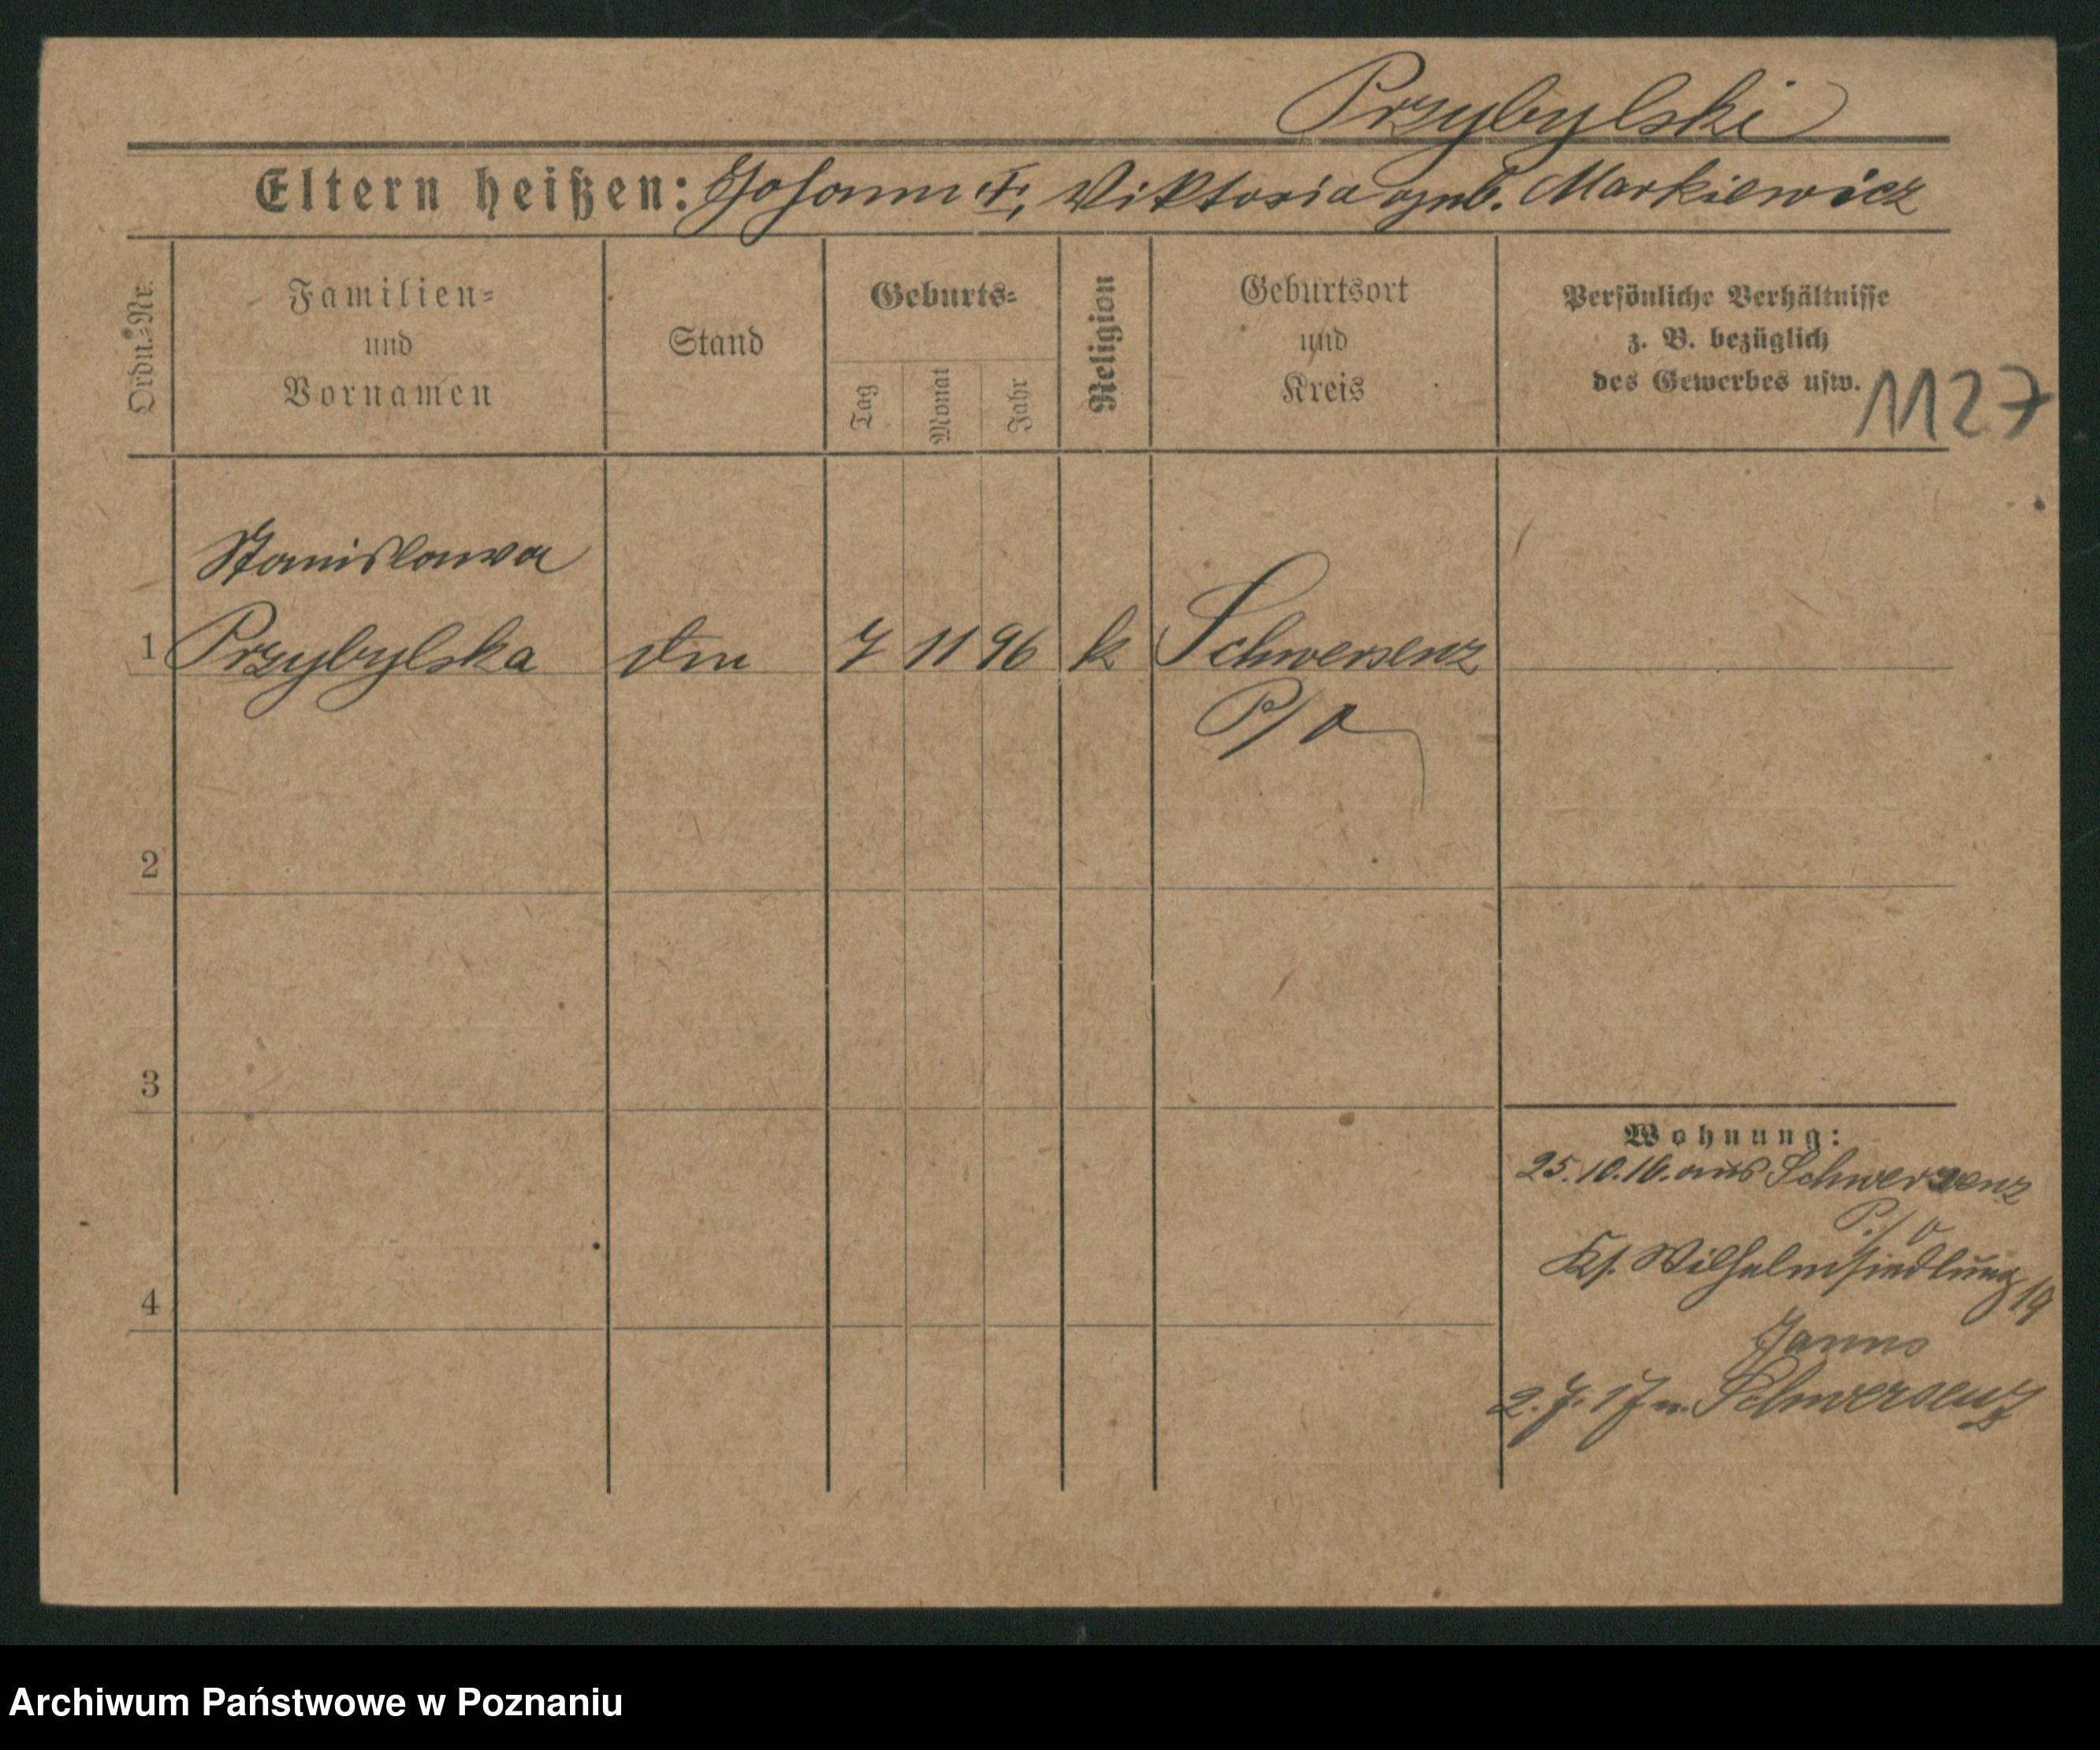 Przybylski
Eltern heißen: Johann †, Viktoria geb. Markiewicz
Ordn.-Nr.
Familien-
und
Vornamen
Stand
Geburts-
Tag
Monat
Jahr
Religion
Geburtsort
und
Kreis
Persönliche Verhältnisse
z. B. bezüglich
des Gewerbes usw.
1127
Stanislawa
1 Przybylska 7 11 96 k Schwersenz
P/O
2
3
4
Wohnung:
25.10.16. aus Schwersenz
P./O
Ks. Wilhelmsiedlung 19
2.7.17 n. Schwersenz
Archiwum Państwowe w Poznaniu